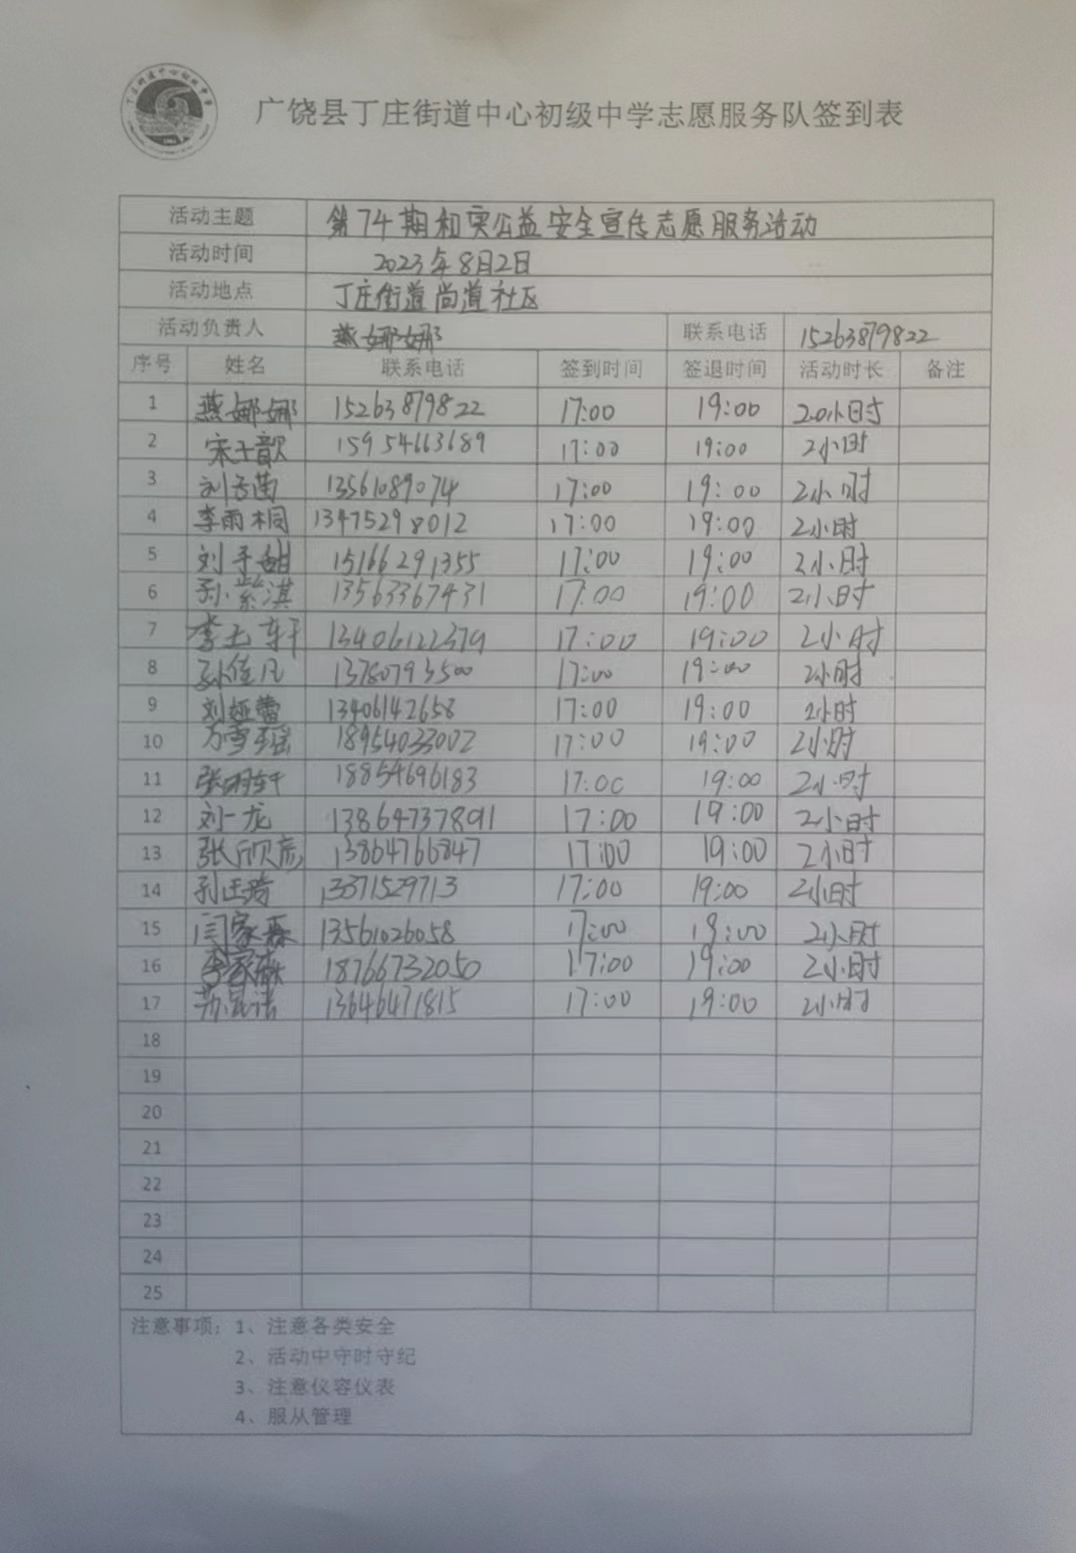 广饶县丁庄街道中心初级中学志愿服务队签到表
活动主题 第74期和实公益安全宣传志愿服务活动
活动时间 2023年8月2日
活动地点 丁庄街道尚道社区
活动负责人 燕娜娜 联系电话 15263879822
序号 姓名 联系电话 签到时间 签退时间 活动时长 备注
1 燕娜娜 15263879822 17:00 19:00 2小时
2 宋士歆 15954663689 17:00 19:00 2小时
3 13561089074 17:00 19:00 2小时
4 李雨桐 13475298012 17:00 19:00 2小时
5 刘子甜 15166291355 17:00 19:00 2小时
6 孙紫淇 13563367431 17:00 19:00 2小时
7 13406122379 17:00 19:00 2小时
8 孙佳凡 13780793500 17:00 19:00 2小时
9 刘娅蕾 13406142658 17:00 19:00 2小时
10 万雪瑶 18954033002 17:00 19:00 2小时
11 张明轩 18854696183 17:00 19:00 2小时
12 刘一龙 13864737891 17:00 19:00 2小时
13 张欣彦 13864766847 17:00 19:00 2小时
14 孙正琦 13371529713 17:00 19:00 2小时
15 闫家森 13561026058 17:00 19:00 2小时
16 18766732050 17:00 19:00 2小时
17 13646471815 17:00 19:00 2小时
18
19
20
21
22
23
24
25
注意事项：1、注意各类安全
2、活动中守时守纪
3、注意仪容仪表
4、服从管理